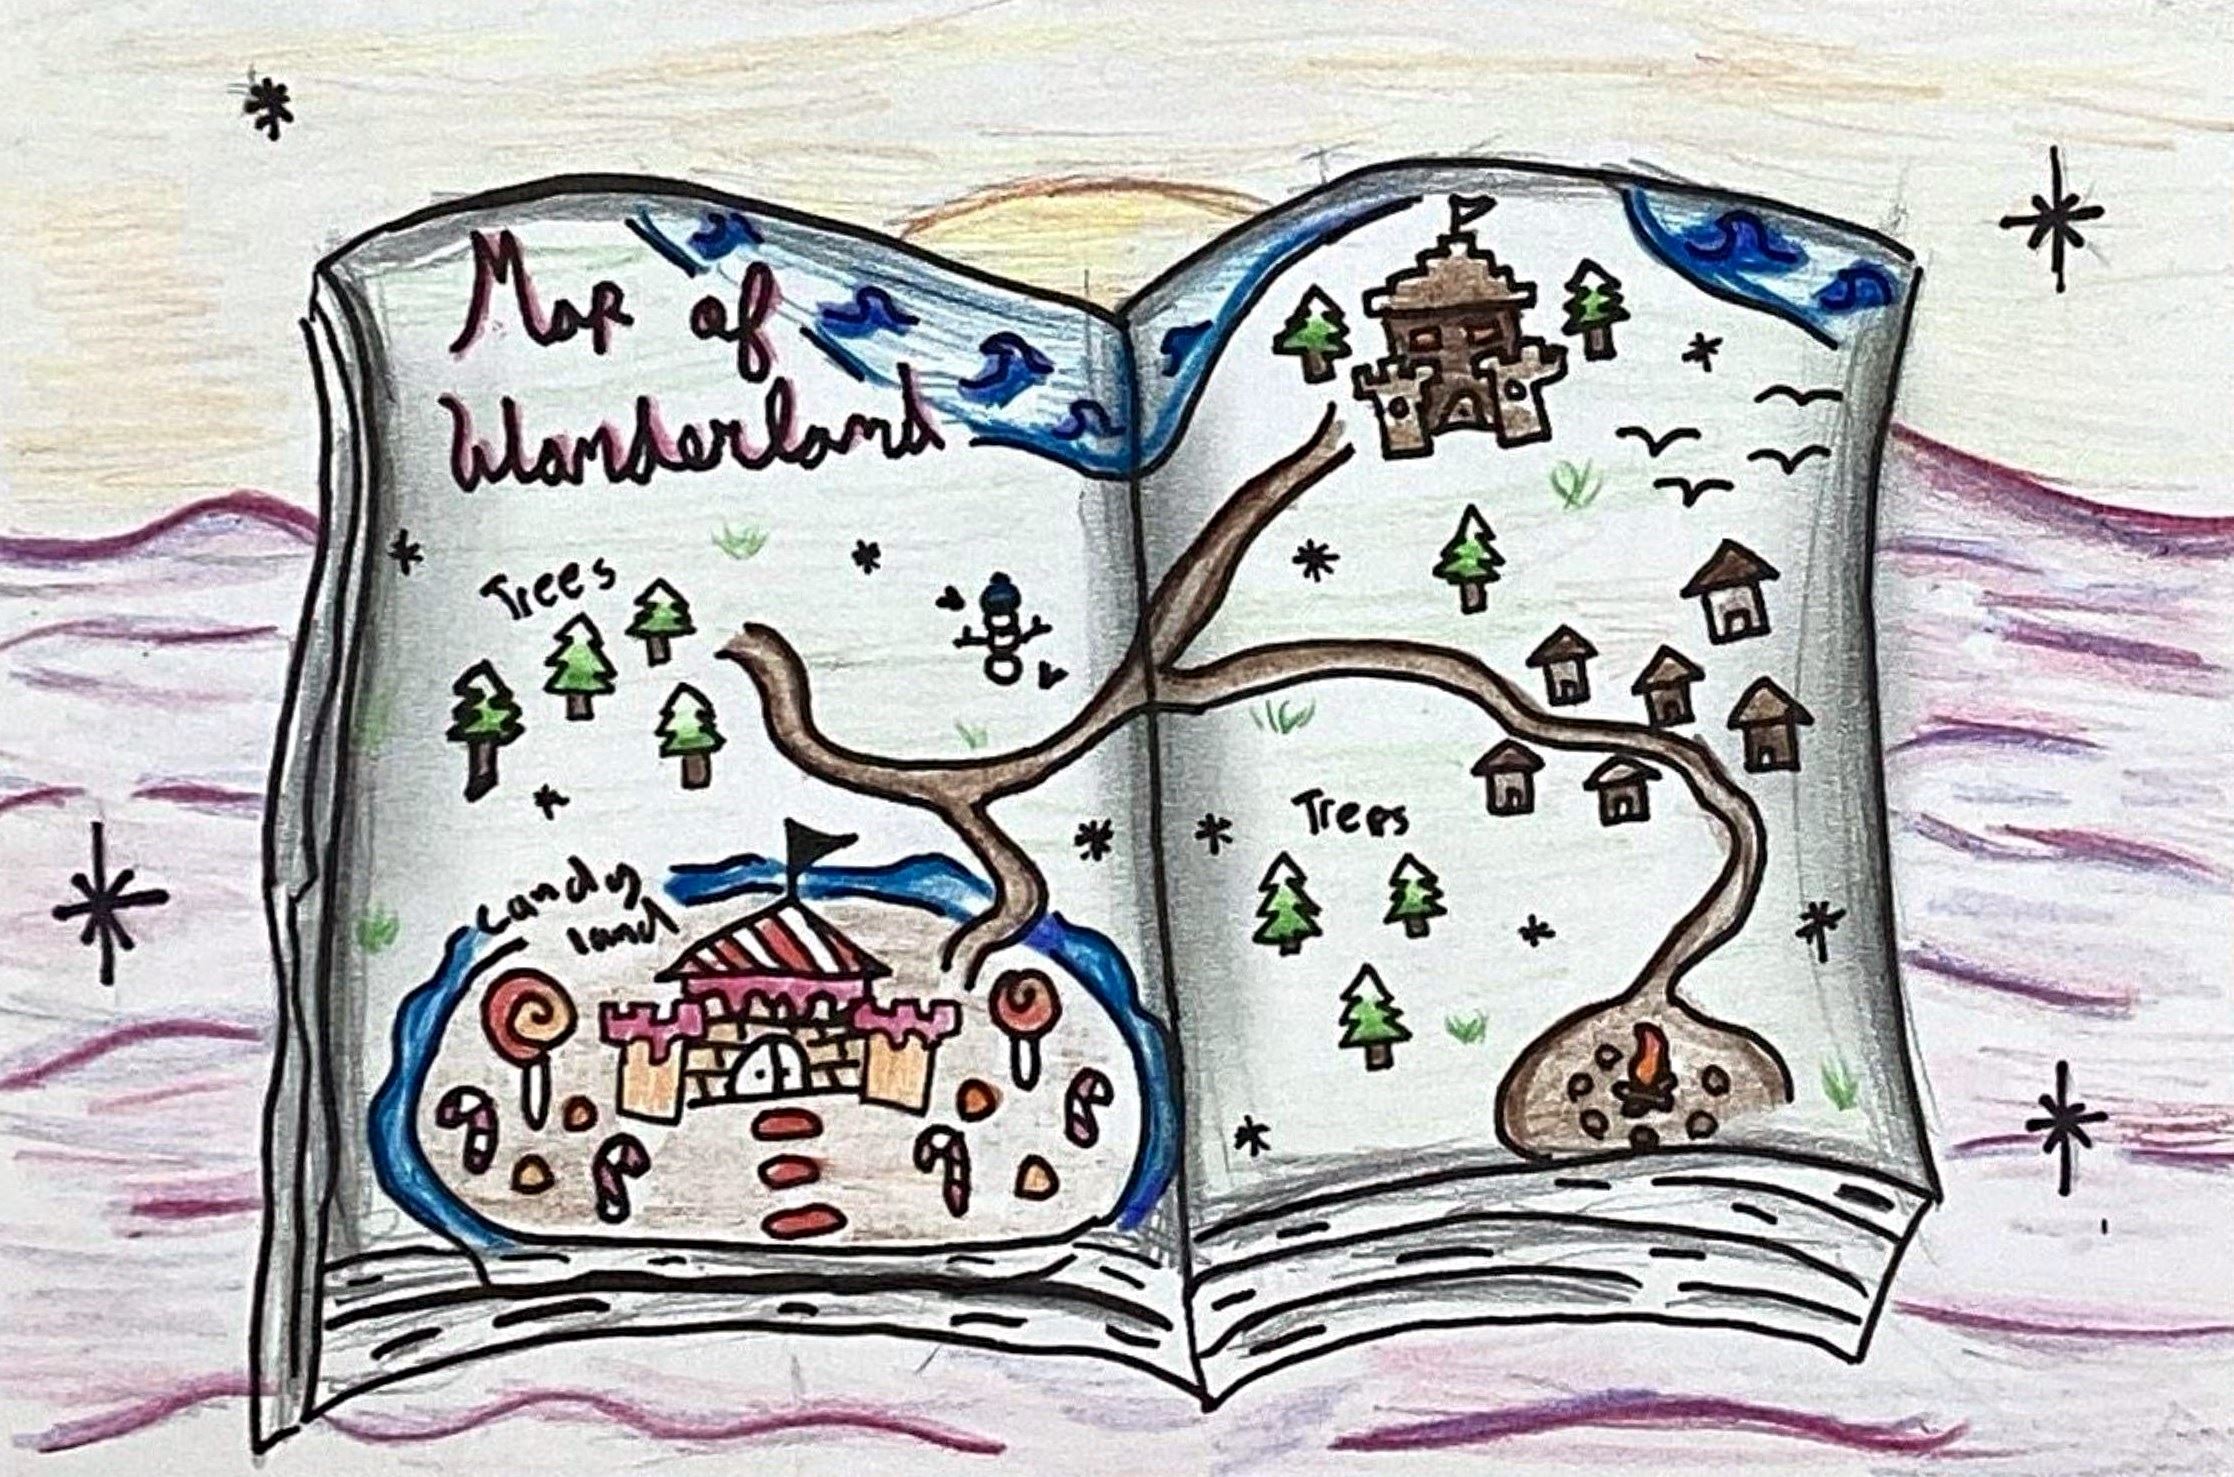 Map of
Wanderland
Trees
Trees
Candy
land